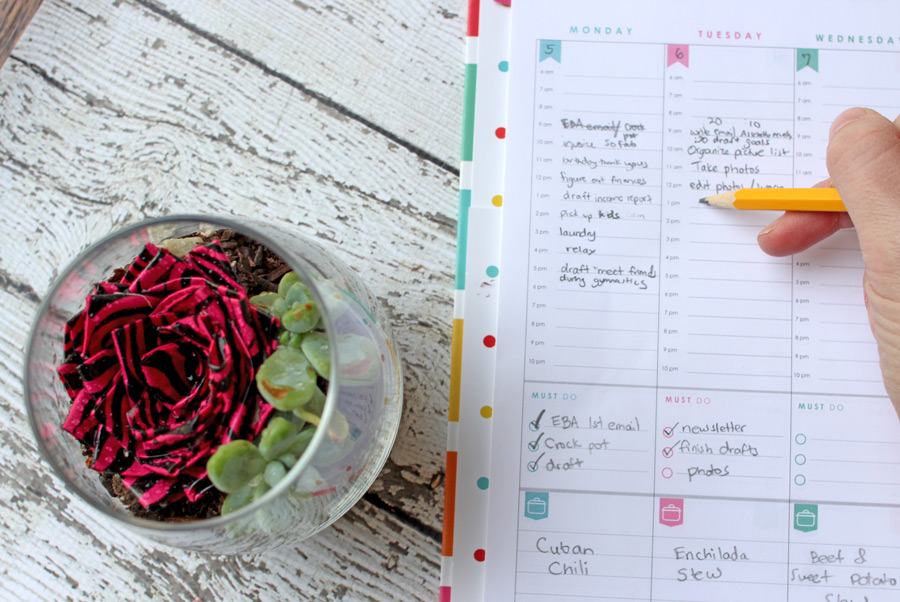 MONDAY
TUESDAY
WEDNESDAY
5
6 am
7 am
8 am
9 am EBA email/ Crock pot
10 am invoice
11 am birthday thank yous
12 pm figure out finances
1 pm draft income report
2 pm pick up kids
3 pm laundry
4 pm relax
5 pm draft "meet friends
during gymnastics
6 pm
7 pm
8 pm
9 pm
10 pm
6
6 am
7 am
8 am
20 10
9 am write email
draft goals
10 am Organize picture list
11 am Take photos
12 pm edit photos /
1 pm
2 pm
3 pm
4 pm
5 pm
6 pm
7 pm
8 pm
9 pm
10 pm
7
6 am
7 am
8 am
9 am
10 am
11 am
4 pm
5 pm
6 pm
7 pm
8 pm
9 pm
10 pm
MUST DO
EBA 1st email
Crock pot
draft
MUST DO
newsletter
finish drafts
photos
MUST DO
Cuban
Chili
Enchilada
Stew
Beef &
Sweet Potato